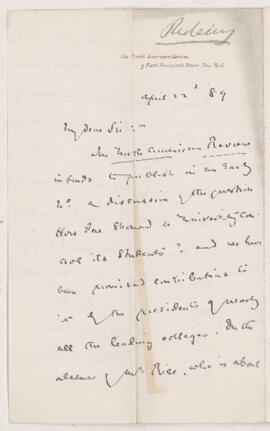 The North American Review
3 East Fourteenth Street, New York
April 22d 89
My dear Sir:-
The North American Review
intends to publish in an early
No. a discussion of the question
How Far Should a University Con-
trol its Students? and we have
been promised contributions to
it by the presidents of nearly
all the leading colleges. In the
absence of Mr Rice, who is about